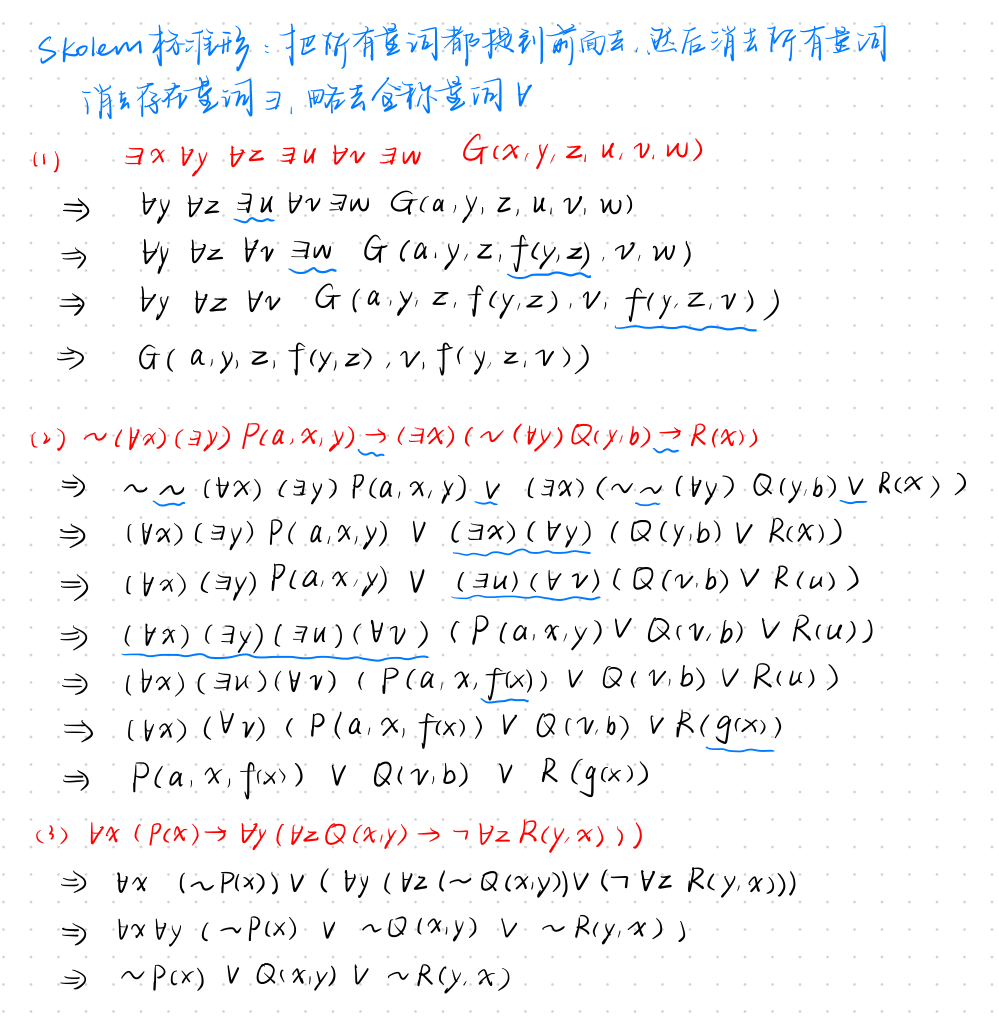 Skolem 标准形：把所有量词都提到前面去，然后消去所有量词
消去存在量词 ∃，略去全称量词 ∀
(1) ∃x ∀y ∀z ∃u ∀v ∃w G(x, y, z, u, v, w)
⇒ ∀y ∀z ∃u ∀v ∃w G(a, y, z, u, v, w)
⇒ ∀y ∀z ∀v ∃w G(a, y, z, f(y,z), v, w)
⇒ ∀y ∀z ∀v G(a, y, z, f(y,z), v, f(y, z, v))
⇒ G(a, y, z, f(y,z), v, f(y, z, v))
(2) ~(∀x)(∃y) P(a, x, y) → (∃x)(~(∀y) Q(y,b) → R(x))
⇒ ~~(∀x)(∃y) P(a, x, y) ∨ (∃x)(~~(∀y) Q(y,b) ∨ R(x))
⇒ (∀x)(∃y) P(a, x, y) ∨ (∃x)(∀y)(Q(y,b) ∨ R(x))
⇒ (∀x)(∃y) P(a, x, y) ∨ (∃u)(∀v)(Q(v,b) ∨ R(u))
⇒ (∀x)(∃y)(∃u)(∀v)(P(a, x, y) ∨ Q(v,b) ∨ R(u))
⇒ (∀x)(∃u)(∀v)(P(a, x, f(x)) ∨ Q(v,b) ∨ R(u))
⇒ (∀x)(∀v)(P(a, x, f(x)) ∨ Q(v,b) ∨ R(g(x))
⇒ P(a, x, f(x)) ∨ Q(v,b) ∨ R(g(x))
(3) ∀x (P(x) → ∀y (∀z Q(x,y) → ¬∀z R(y, x)))
⇒ ∀x (~P(x)) ∨ (∀y (∀z (~Q(x,y)) ∨ (¬∀z R(y, x)))
⇒ ∀x ∀y (~P(x) ∨ ~Q(x,y) ∨ ~R(y, x))
⇒ ~P(x) ∨ Q(x,y) ∨ ~R(y, x)